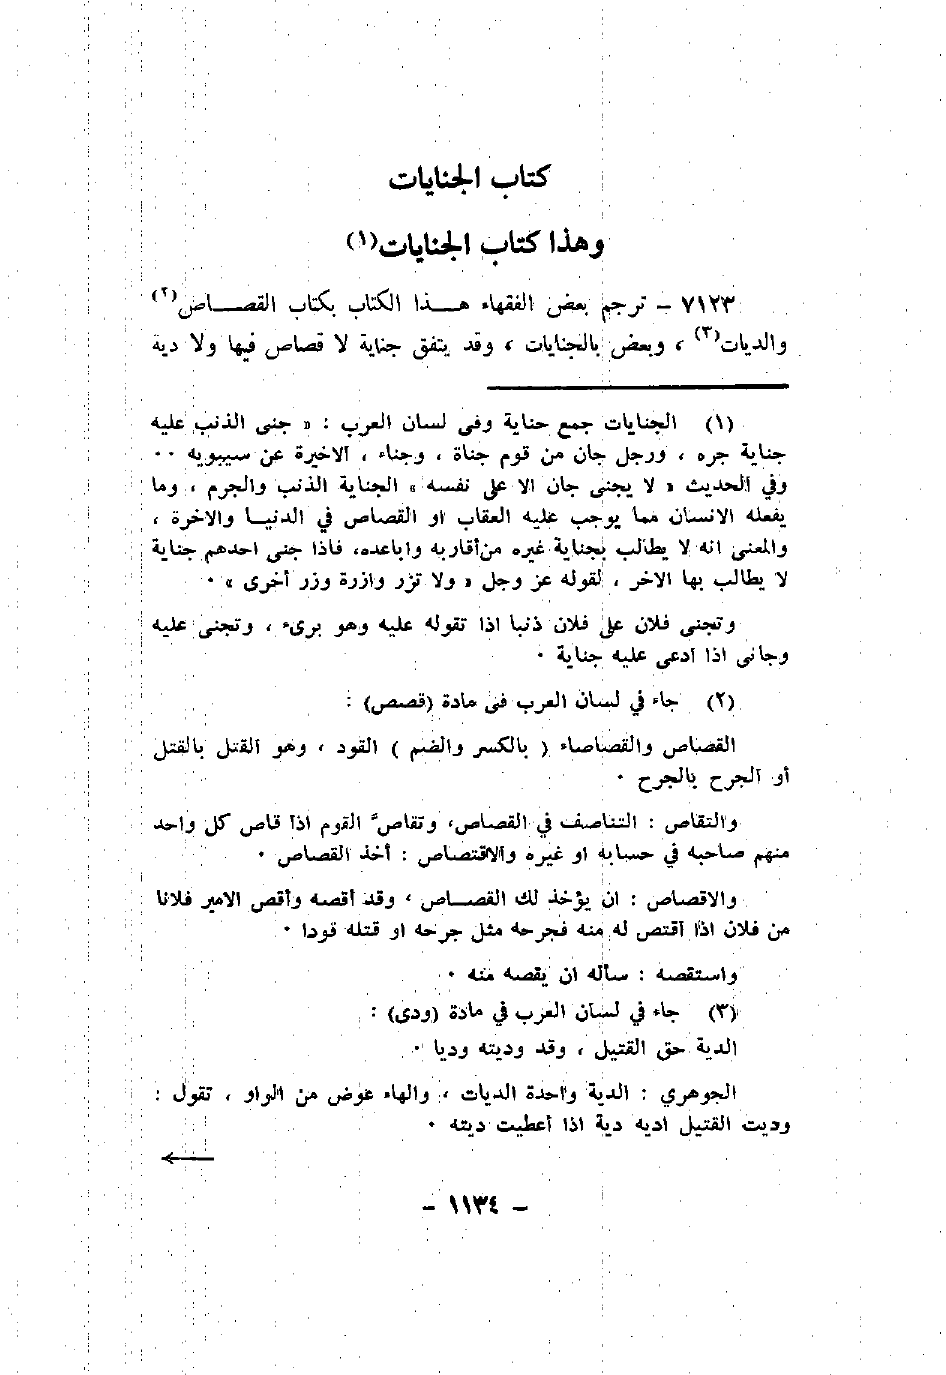 كتاب الجنايات
وهذا كتاب الجنايات(١)
٧١٢٣ – ترجم بعض الفقهاء هـــذا الكتاب بكتاب القصـــاص(٢)
والديات(٣) ، وبعض بالجنايات ، وقد يتفق جناية لا قصاص فيها ولا دية
(١) الجنايات جمع جناية وفى لسان العرب : « جنى الذنب عليه
جناية جره ، ورجل جان من قوم جناة ، وجناء ، الاخيرة عن سيبويه ٠٠
وفي الحديث « لا يجنى جان الا على نفسه » الجناية الذنب والجرم ، وما
يفعله الانسان مما يوجب عليه العقاب او القصاص في الدنيــا والاخرة ،
والمعنى انه لا يطالب بجناية غيره من أقاربه وأباعده، فاذا جنى احدهم جناية
لا يطالب بها الاخر ، لقوله عز وجل « ولا تزر وازرة وزر أخرى » ٠
وتجنى فلان على فلان ذنبا اذا تقوله عليه وهو برىء ، وتجنى عليه
وجانى اذا أدعى عليه جناية ٠
(٢) جاء في لسان العرب فى مادة (قصص) :
القصاص والقصاصاء ( بالكسر والضم ) القود ، وهو القتل بالقتل
أو الجرح بالجرح ٠
والتقاص : التناصف في القصاص، وتقاصّ القوم اذا قاص كل واحد
منهم صاحبه في حسابه او غيره والاقتصاص : أخذ القصاص ٠
والاقصاص : ان يؤخذ لك القصــاص ، وقد أقصه وأقص الامير فلانا
من فلان اذا أقتص له منه فجرحه مثل جرحه او قتله قودا ٠
واستقصه : سأله ان يقصه منه ٠
(٣) جاء في لسان العرب في مادة (ودى) :
الدية حق القتيل ، وقد وديته وديا ٠
الجوهري : الدية واحدة الديات ، والهاء عوض من الواو ، تقول :
وديت القتيل اديه دية اذا أعطيت ديته ٠
– ١١٣٤ –